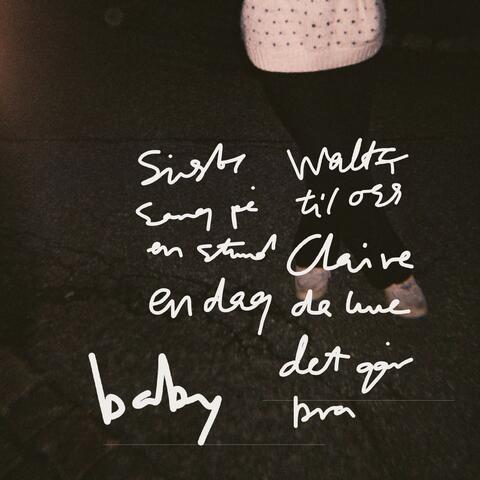 Siste
sang på
en stund
en dag
baby
Walter
til oss
Claire
da
det går
bra